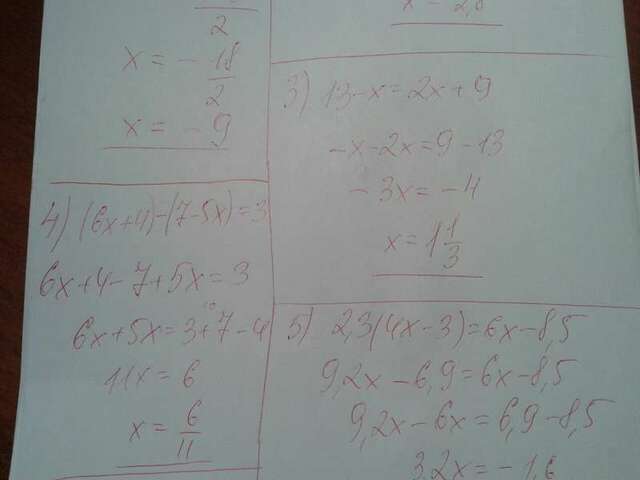 2
x = - 18/2
x = - 9
4) (6x+4)-(7-5x)=3
6x+4-7+5x=3
10
6x+5x=3+7-4
11x = 6
x = 6/11
3) 13-x=2x+9
-x-2x=9-13
-3x=-4
x=1 1/3
5) 2,3(4x-3)=6x-8,5
9,2x-6,9=6x-8,5
9,2x-6x=6,9-8,5
3,2x=-1,6